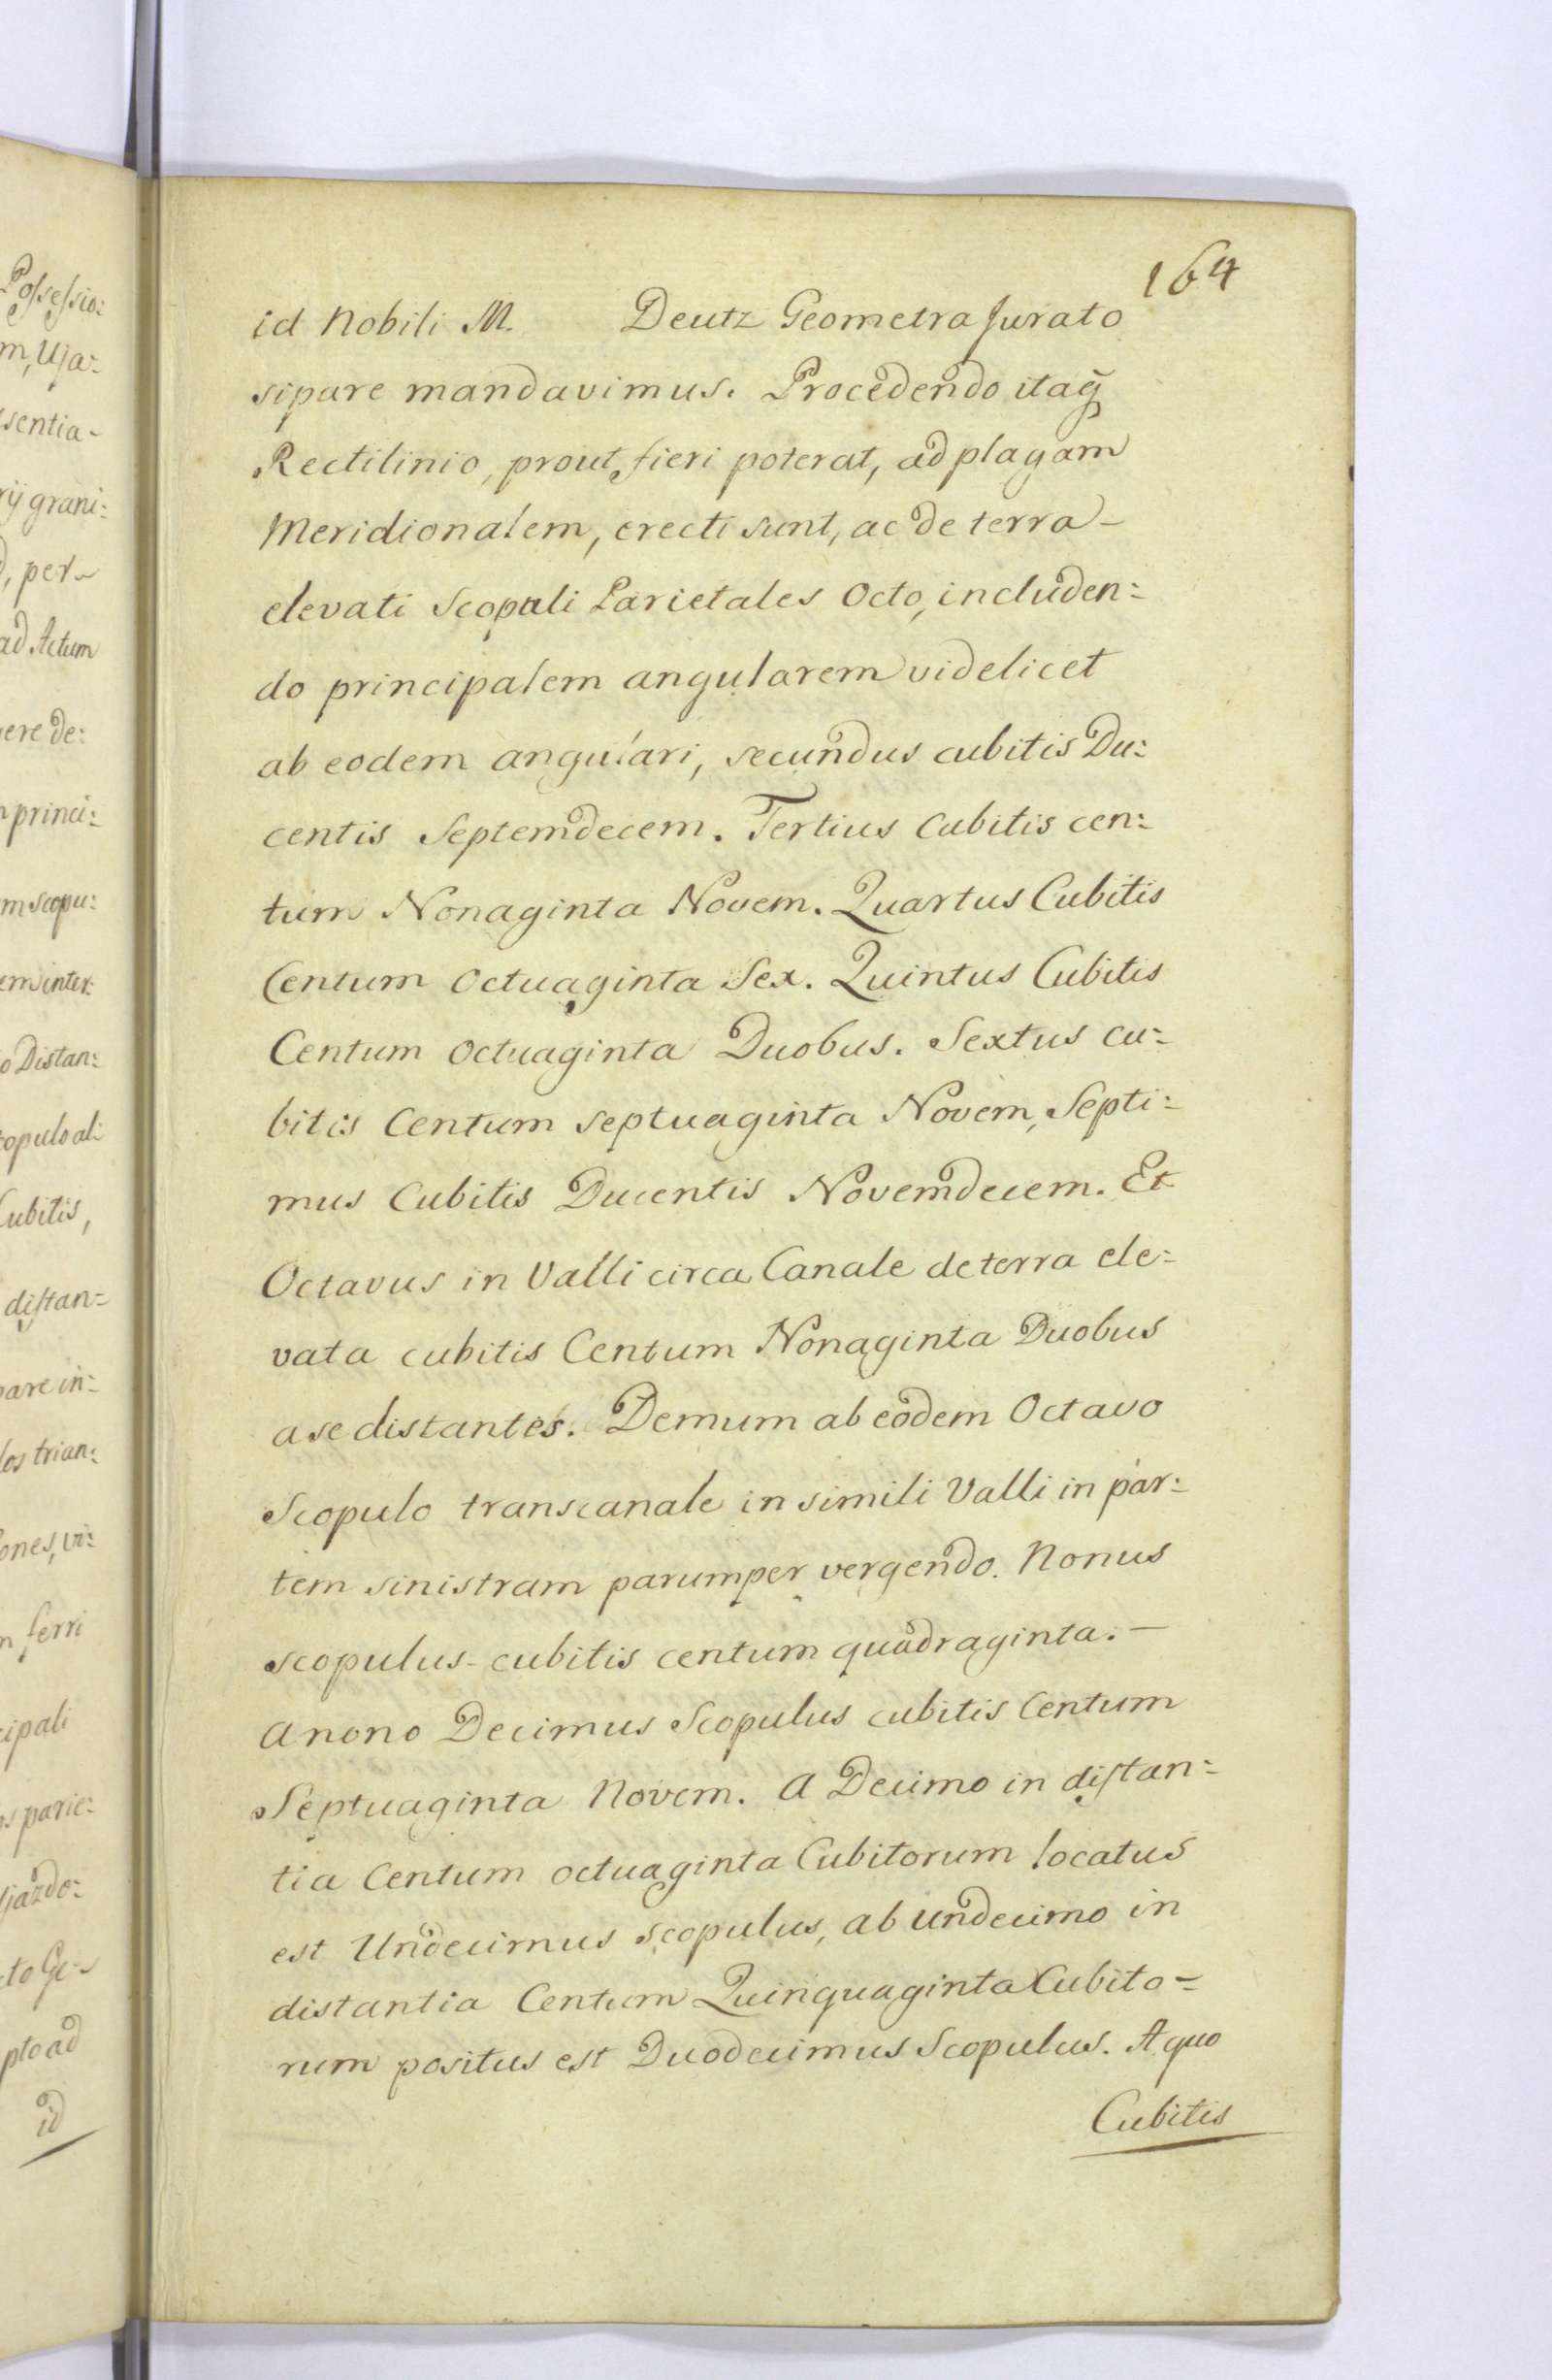 164
id Nobili M. Deutz Geometra Jurato
sipare mandavimus. Procedendo itaq̃
Rectilinio, prout fieri poterat, ad plagam
Meridionalem, erecti sunt, ac de terra -
elevati Scopuli Parietales Octo, includen:
do principalem angularem videlicet
ab eodem angulari, secundus cubitis Du:
centis Septemdecem. Tertius Cubitis cen:
tum Nonaginta Novem. Quartus Cubitis
Centum Octuaginta Sex. Quintus Cubitis
Centum Octuaginta Duobus. Sextus cu:
bitis Centum septuaginta Novem, Septi:
mus Cubitis Ducentis Novemdecem. Et
Octavus in Valli circa Canale de terra ele:
vata cubitis Centum Nonaginta Duobus
a se distantes. Demum ab eodem Octavo
Scopulo transcanale in simili Valli in par:
tem sinistram parumper vergendo. Nonus
scopulus - cubitis centum quadraginta. -
A nono Decimus Scopulus cubitis Centum
Septuaginta Novem. A Decimo in distan:
tia Centum octuaginta Cubitorum locatus
est Undecimus scopulus, ab undecimo in
distantia Centum Quinquaginta Cubito=
rum positus est Duodecimus Scopulus. A quo
Cubitis
Possessio:
m, Uja:
sentia -
rij grani:
, per
ad Actum
ere de:
princi:
m scopu:
em inter:
o Distan:
copulo al:
Cubitis,
distan=
pare in:
los trian:
ones, vi:
ferri
cipali
os parie:
jazdo:
to Ge
pto ad
id